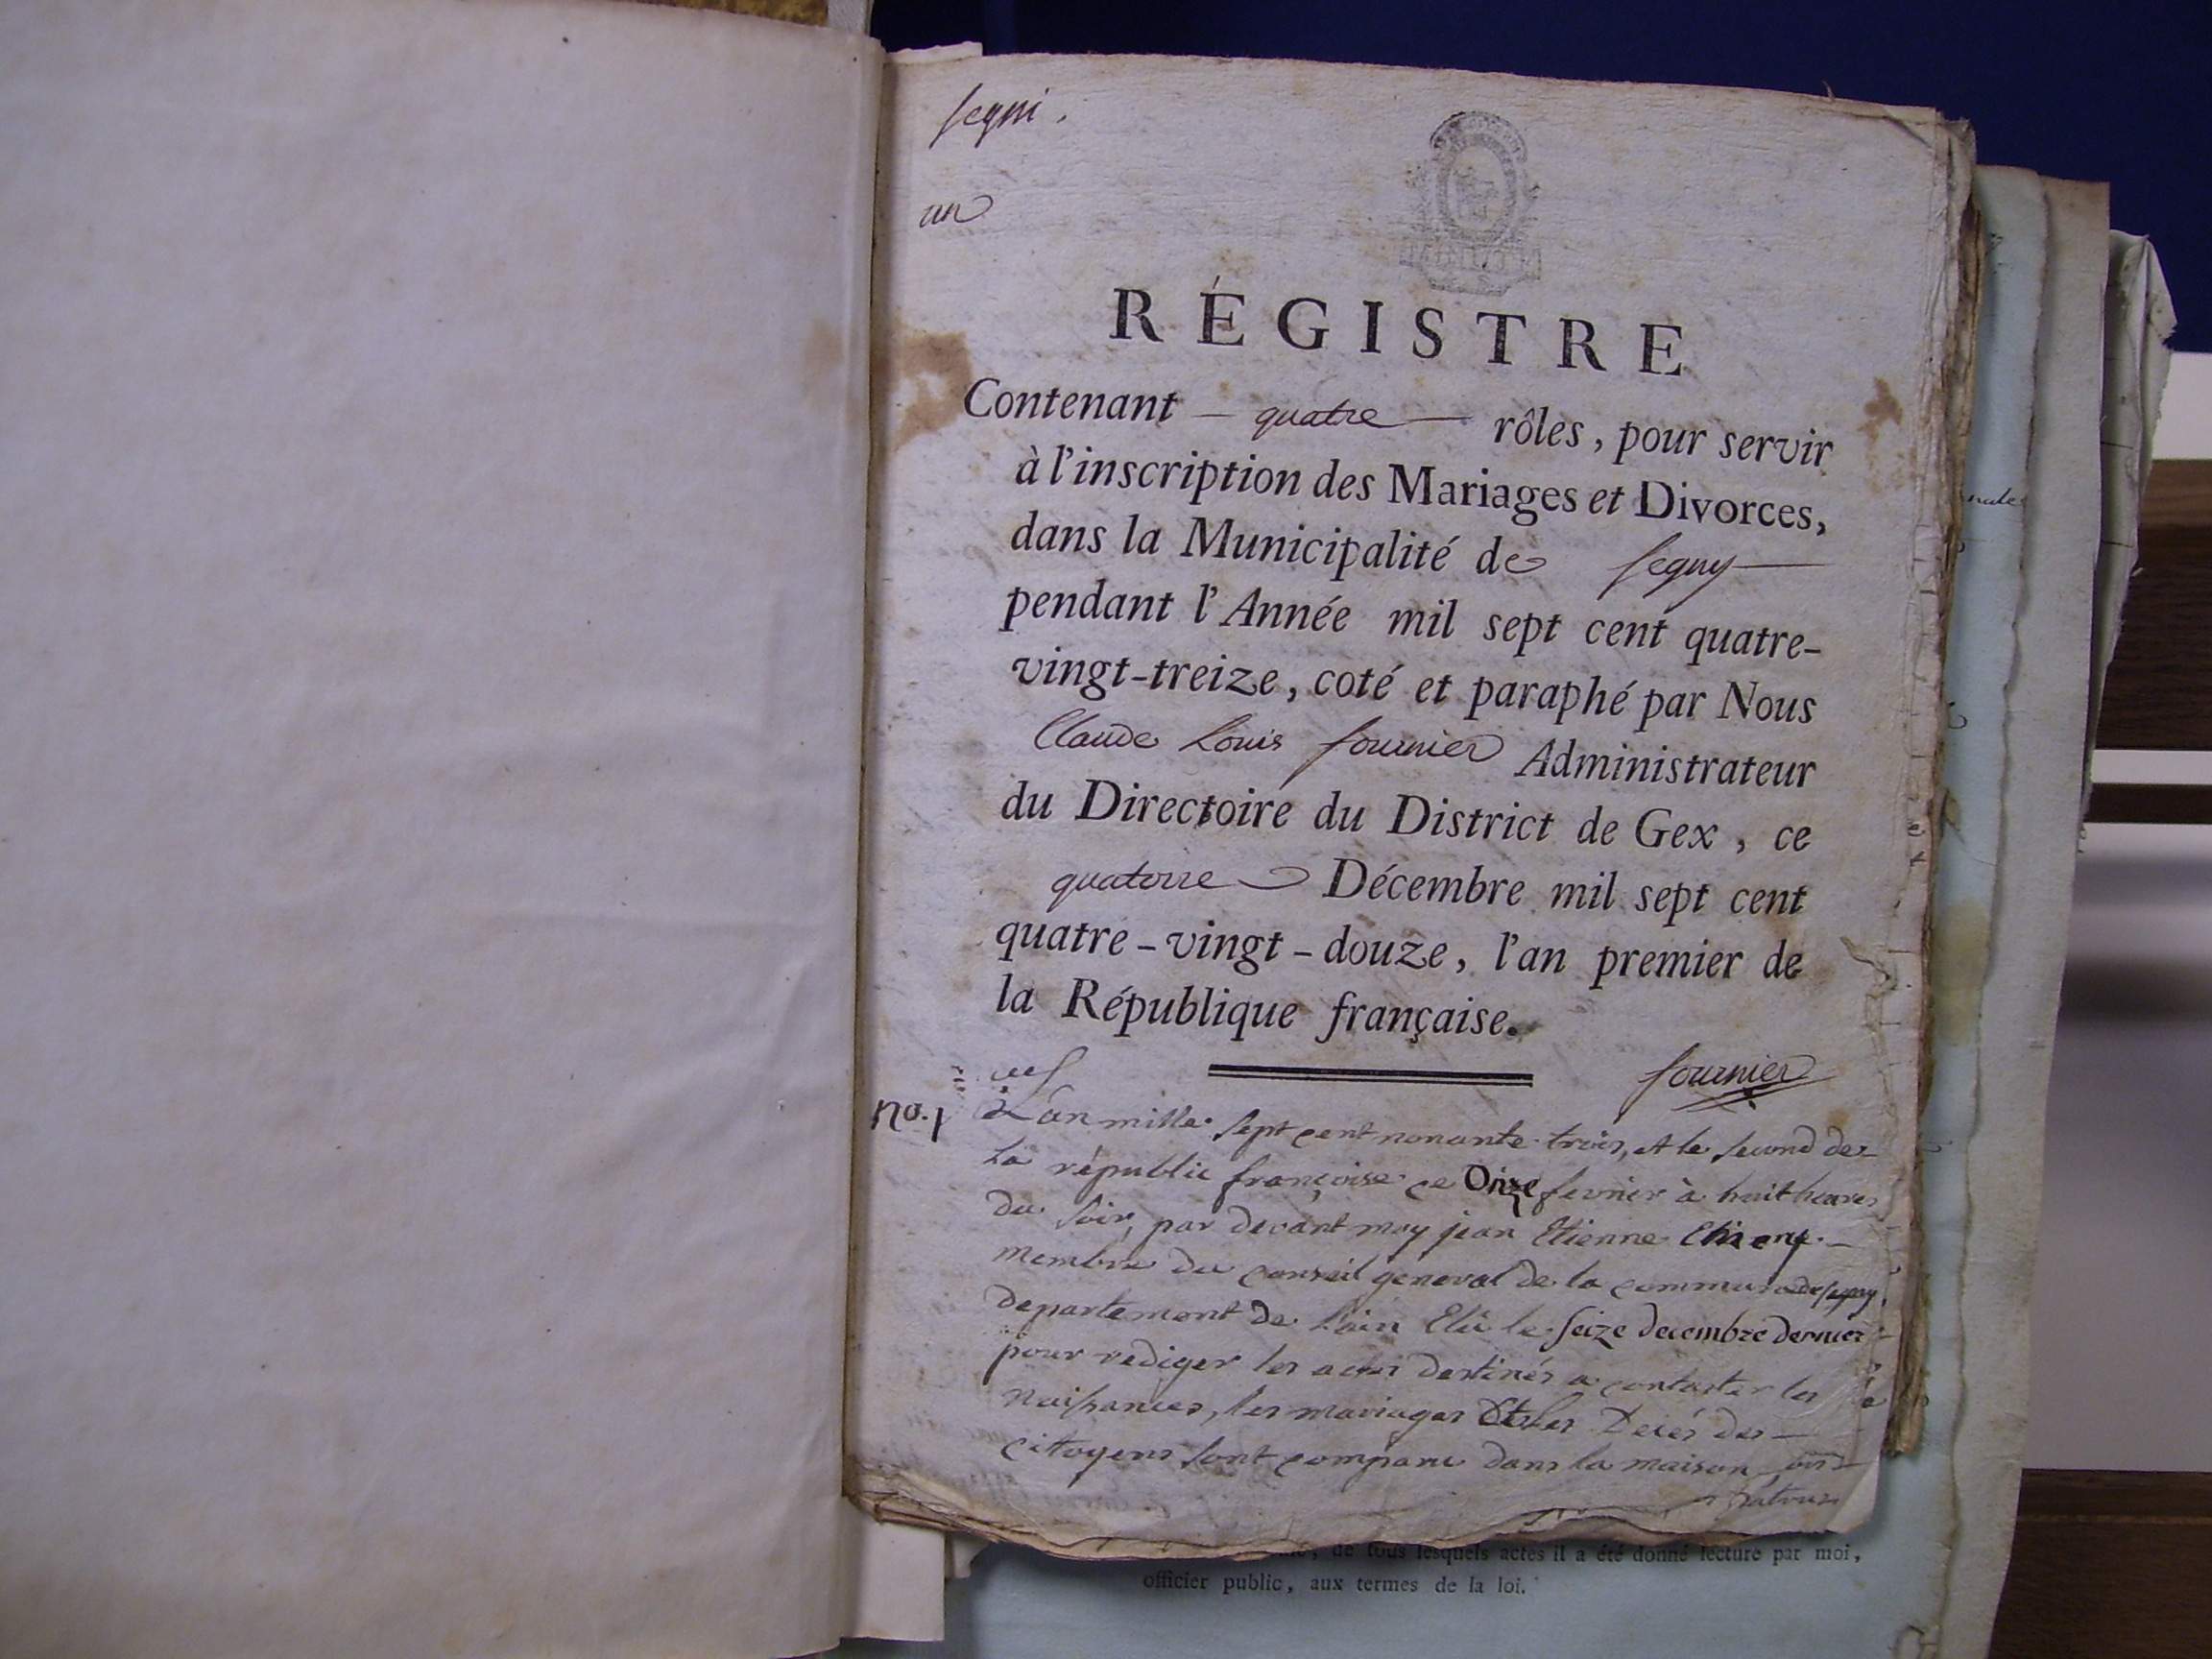 segni.
un
RÉGISTRE
Contenant — quatre — rôles, pour servir
à l'inscription des Mariages et Divorces,
dans la Municipalité de segny —
pendant l'Année mil sept cent quatre-
vingt-treize, coté et paraphé par Nous
Claude Louis fournier Administrateur
du Directoire du District de Gex, ce
quatorze Décembre mil sept cent
quatre-vingt-douze, l'an premier de
la République française.
fournier
no. 1 L'an mille sept cent nonante trois, et le second de
La républic françoise ce Onze fevrier à huit heures
du soir, par devant moy jean Etienne
membre du conseil general de la commune de segny,
departement de l'ain Elû le seize decembre dernier
pour rediger les actes destinés a constater les
naissances, les mariages Et les Decés des —
cittoyens sont comparu dans la maison
de tous lesquels actes il a été donné lecture par moi,
officier public, aux termes de la loi.